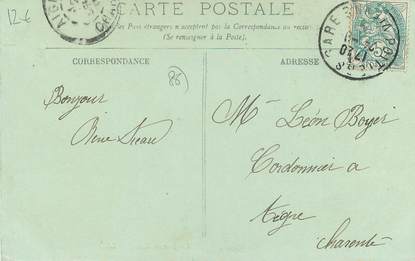 12€
CARTE POSTALE
Pays étrangers n'acceptent pas la Correspondance au recto
(Se renseigner à la Poste).
CORRESPONDANCE
ADRESSE
86
Bonjour
René Sicard
Mr Léon Boyer
Cordonnier à
Aigre
Charente
GARE